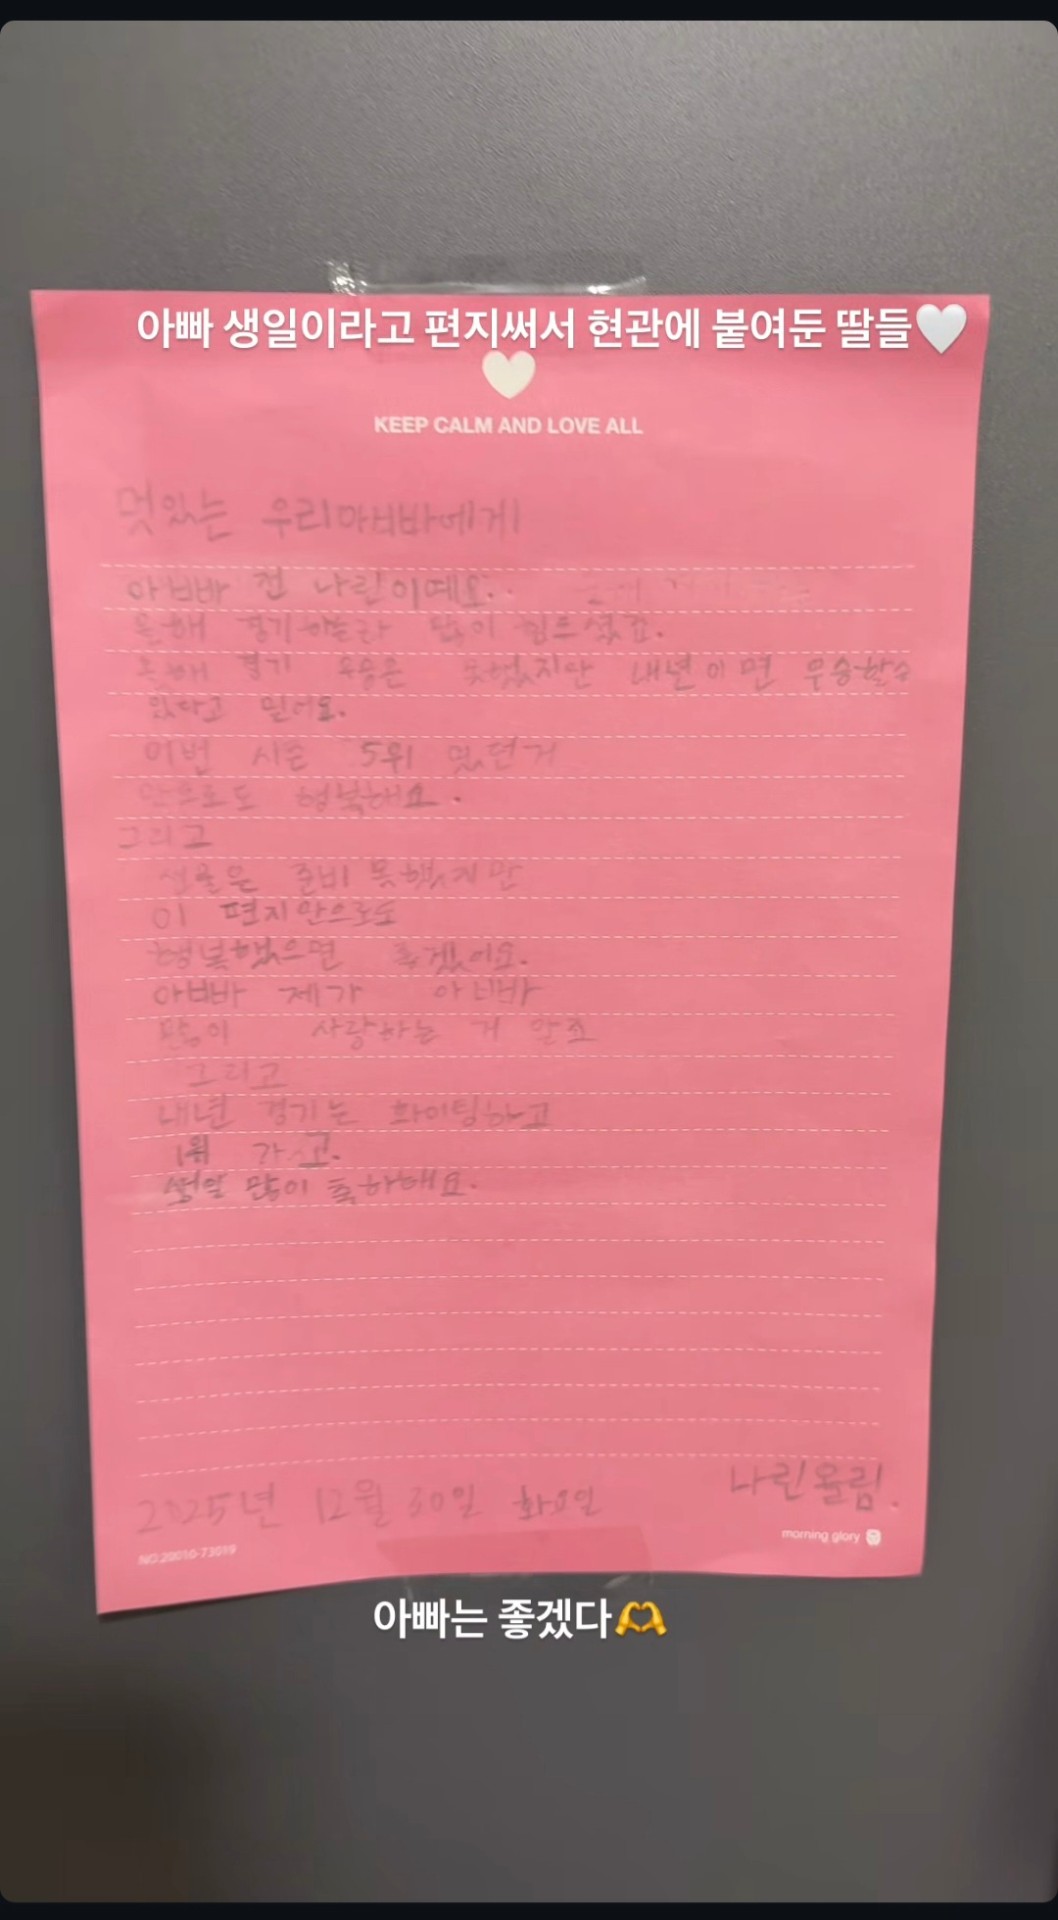 아빠 생일이라고 편지써서 현관에 붙여둔 딸들🤍
KEEP CALM AND LOVE ALL
멋있는 우리아빠에게
아빠 전 나린이예요..
올해 경기하는라 많이 힘드셨죠.
올해 경기 우승은 못했지만 내년이면 우승할수
있다고 믿어요.
이번 시즌 5위 였던거
만으로도 행복해요.
그리고
선물은 준비 못했지만
이 편지만으로도
행복했으면 좋겠어요.
아빠 제가 아빠
많이 사랑하는 거 알죠
그리고
내년 경기는 화이팅하고
1위 가고.
생일 많이 축하해요.
나린올림.
2025년 12월 30일 화요일
morning glory
NO.20010-73019
아빠는 좋겠다🫶